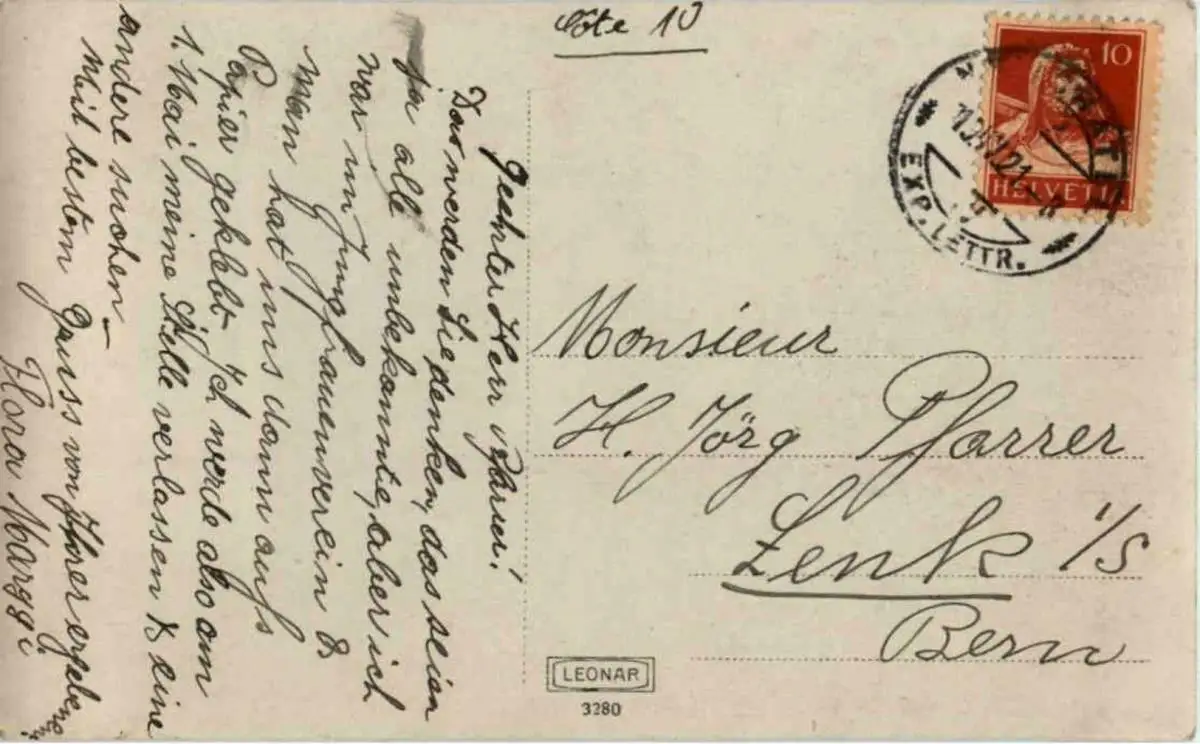 Côte 10
Geehrter Herr Pfarrer!
Das werden Sie denken, das seien
ja alle unbekannte, aber ich
war im Jungfrauenverein &
man hat uns dann aufs
Papier geklebt Ich werde also am
1. Mai meine Stelle verlassen & eine
andere suchen
Mit bestem Gruss von Ihrer ergebenen
Flora Marggi
Monsieur
H. Jörg Pfarrer
Lenk i/S
Bern
10
HELVETIA
EXP. LETTR.
LEONAR
3280